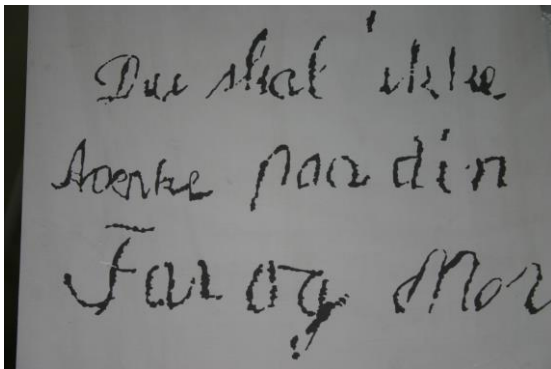 Du skal ikke
tænke paa din
Far og Mor